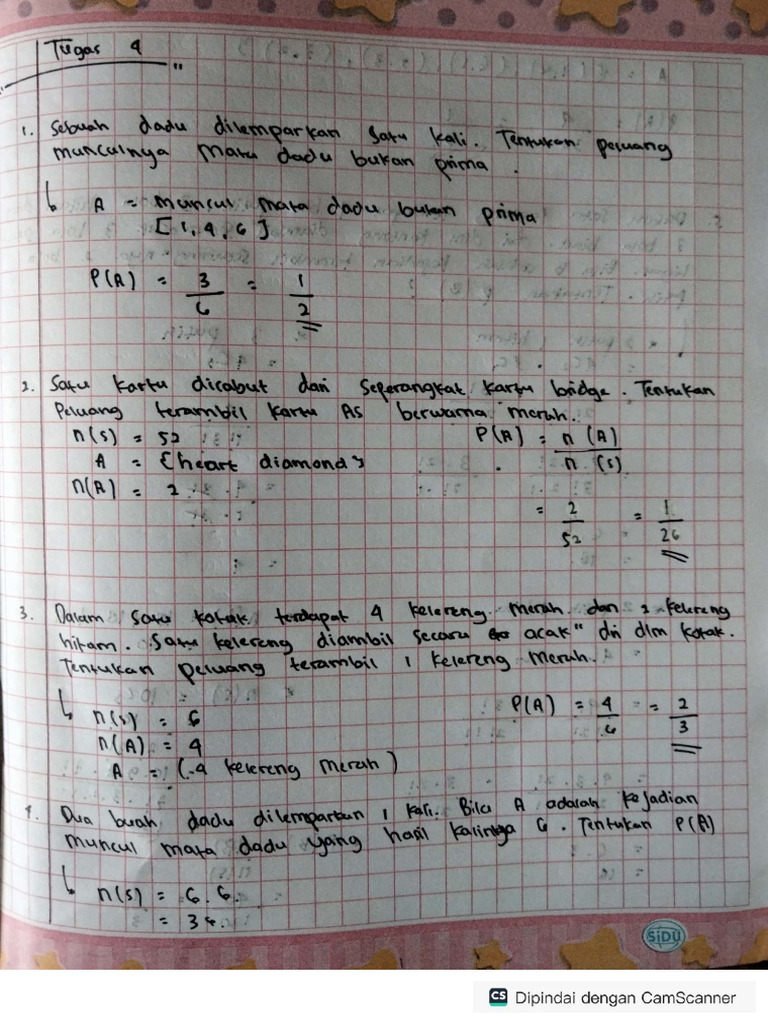 Tugas 4
1. Sebuah dadu dilemparkan satu kali. Tentukan peluang
munculnya mata dadu bukan prima.
↳ A = muncul mata dadu bukan prima
[1, 4, 6]
P(A) = 3/6 = 1/2
2. Satu kartu dicabut dari seperangkat kartu bridge. Tentukan
Peluang terambil kartu As berwarna merah.
n(s) = 52
A = {heart diamond}
n(A) = 2
P(A) = n(A)/n(s)
= 2/52 = 1/26
3. Dalam satu kotak terdapat 4 kelereng merah dan 2 kelereng
hitam. Satu kelereng diambil secara acak" dri dlm kotak.
Tentukan peluang terambil 1 kelereng merah.
↳ n(s) = 6
n(A) = 4
A = (4 kelereng merah)
P(A) = 4/6 = 2/3
4. Dua buah dadu dilemparkan 1 kali. Bila A adalah kejadian
muncul mata dadu yang hasil kalinya 6. Tentukan P(A)
↳ n(s) = 6.6.
= 36.
SiDU
CS Dipindai dengan CamScanner